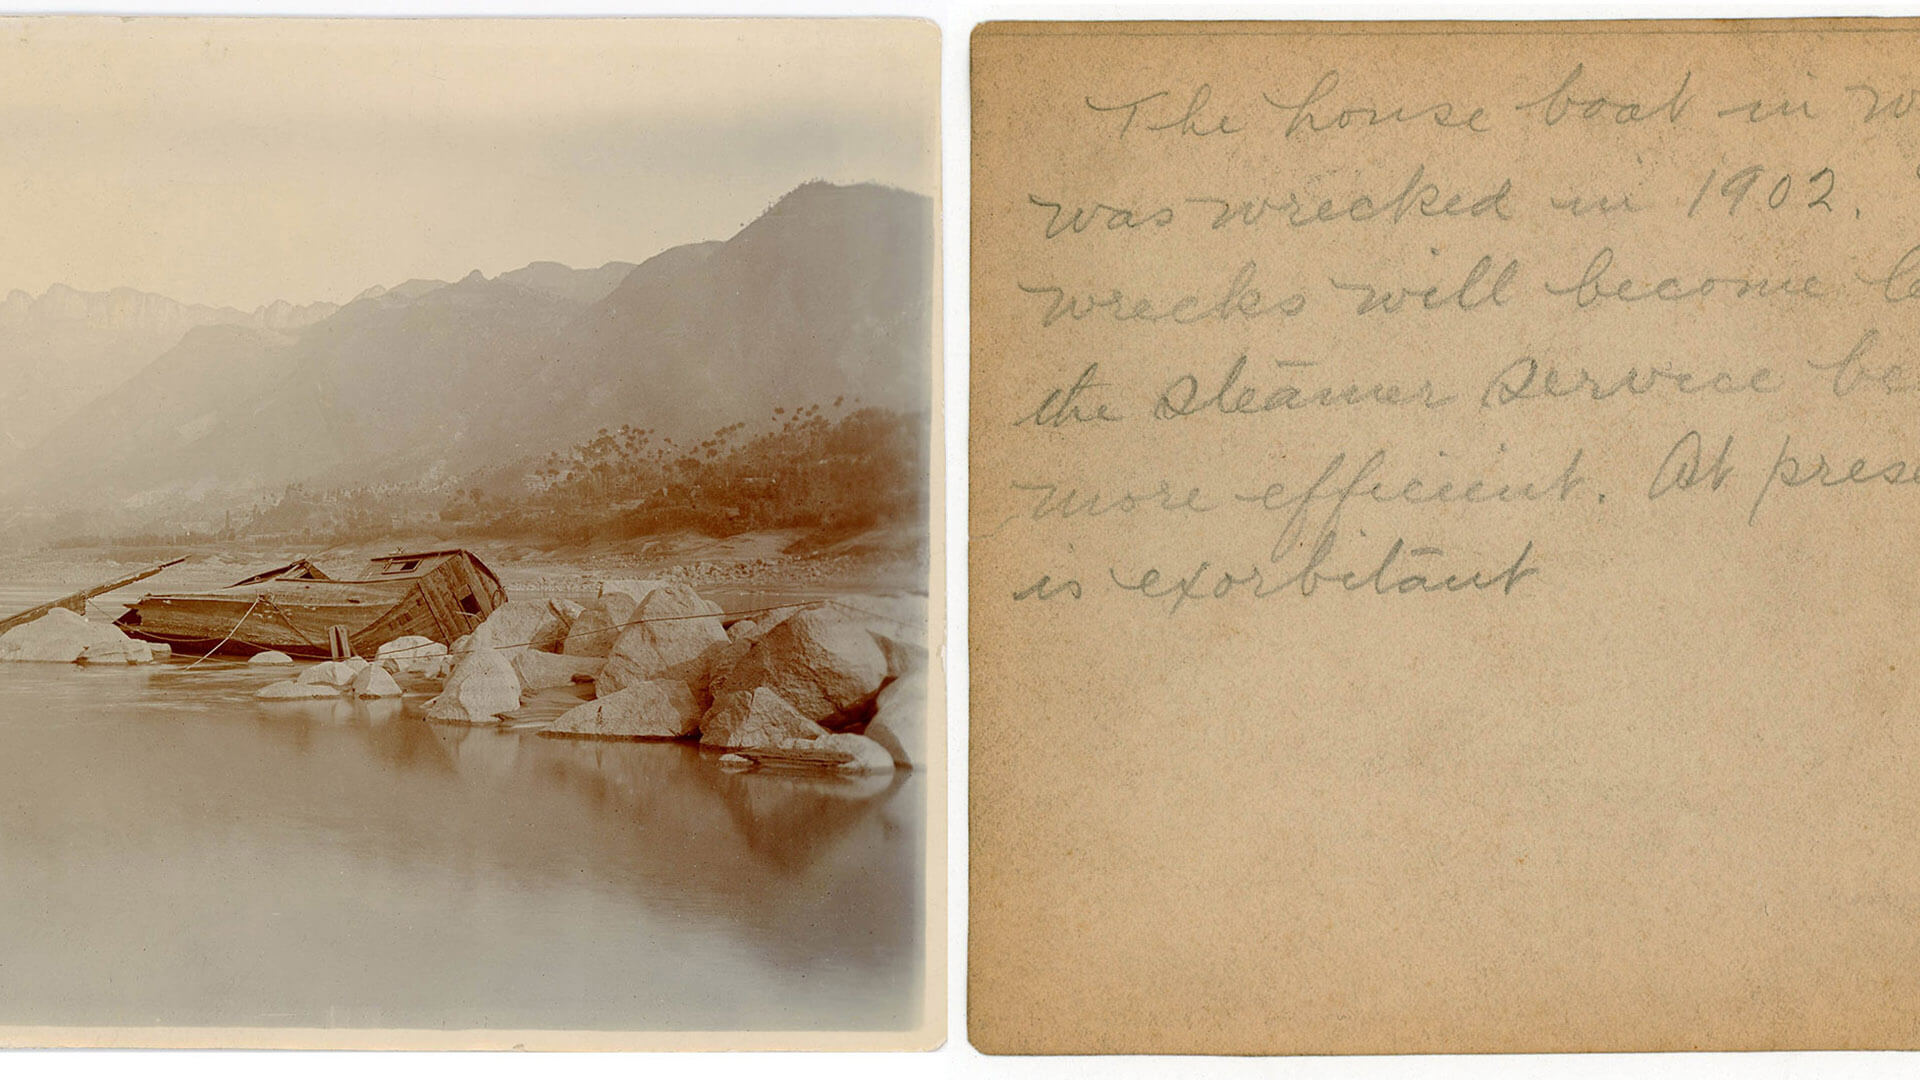 The house boat in
was wrecked in 1902.
wrecks will become
the steamer service
more efficient. At
is exorbitant